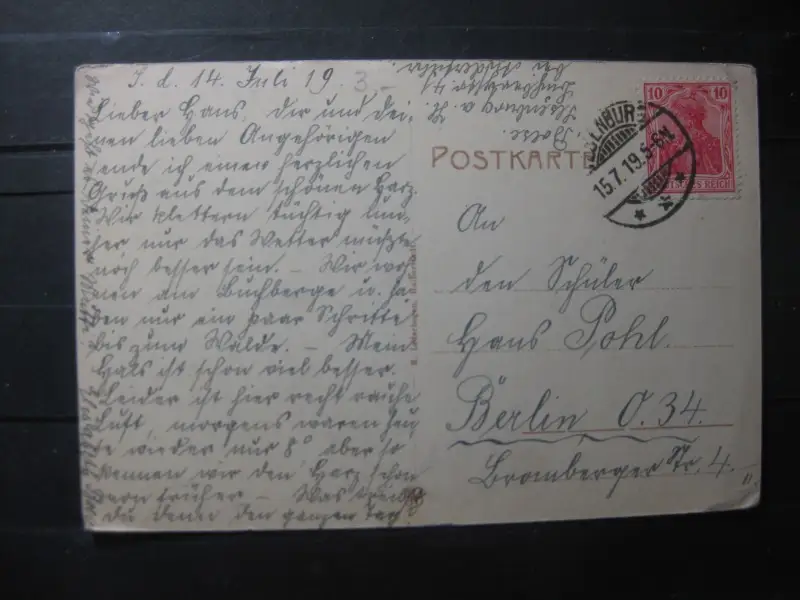 J. d. 14. Juli 19
3.-
Lieber Hans, dir und dei-
nen lieben Angehörigen
sende ich einen herzlichen
Gruß aus dem schönen Harz.
Wir klettern tüchtig um-
her nur das Wetter müßte
noch besser sein. - Wir woh-
nen am Buchberge u. ha-
ben nur ein paar Schritte
bis zum Walde. - Mein
Hals ist schon viel besser.
Leider ist hier recht rauhe
Luft, morgens waren heu-
te wieder nur 8° aber so
kennen wir den Harz schon
von früher - Was treibst
du denn den ganzen Tag?
Ilsenburg a. H.
POSTKARTE
ILSENBURG
15.7.19.5-6N.
10 10
DEUTSCHES REICH
An
den Schüler
Hans Pohl.
Berlin O. 34.
Bromberger Str. 4. II.